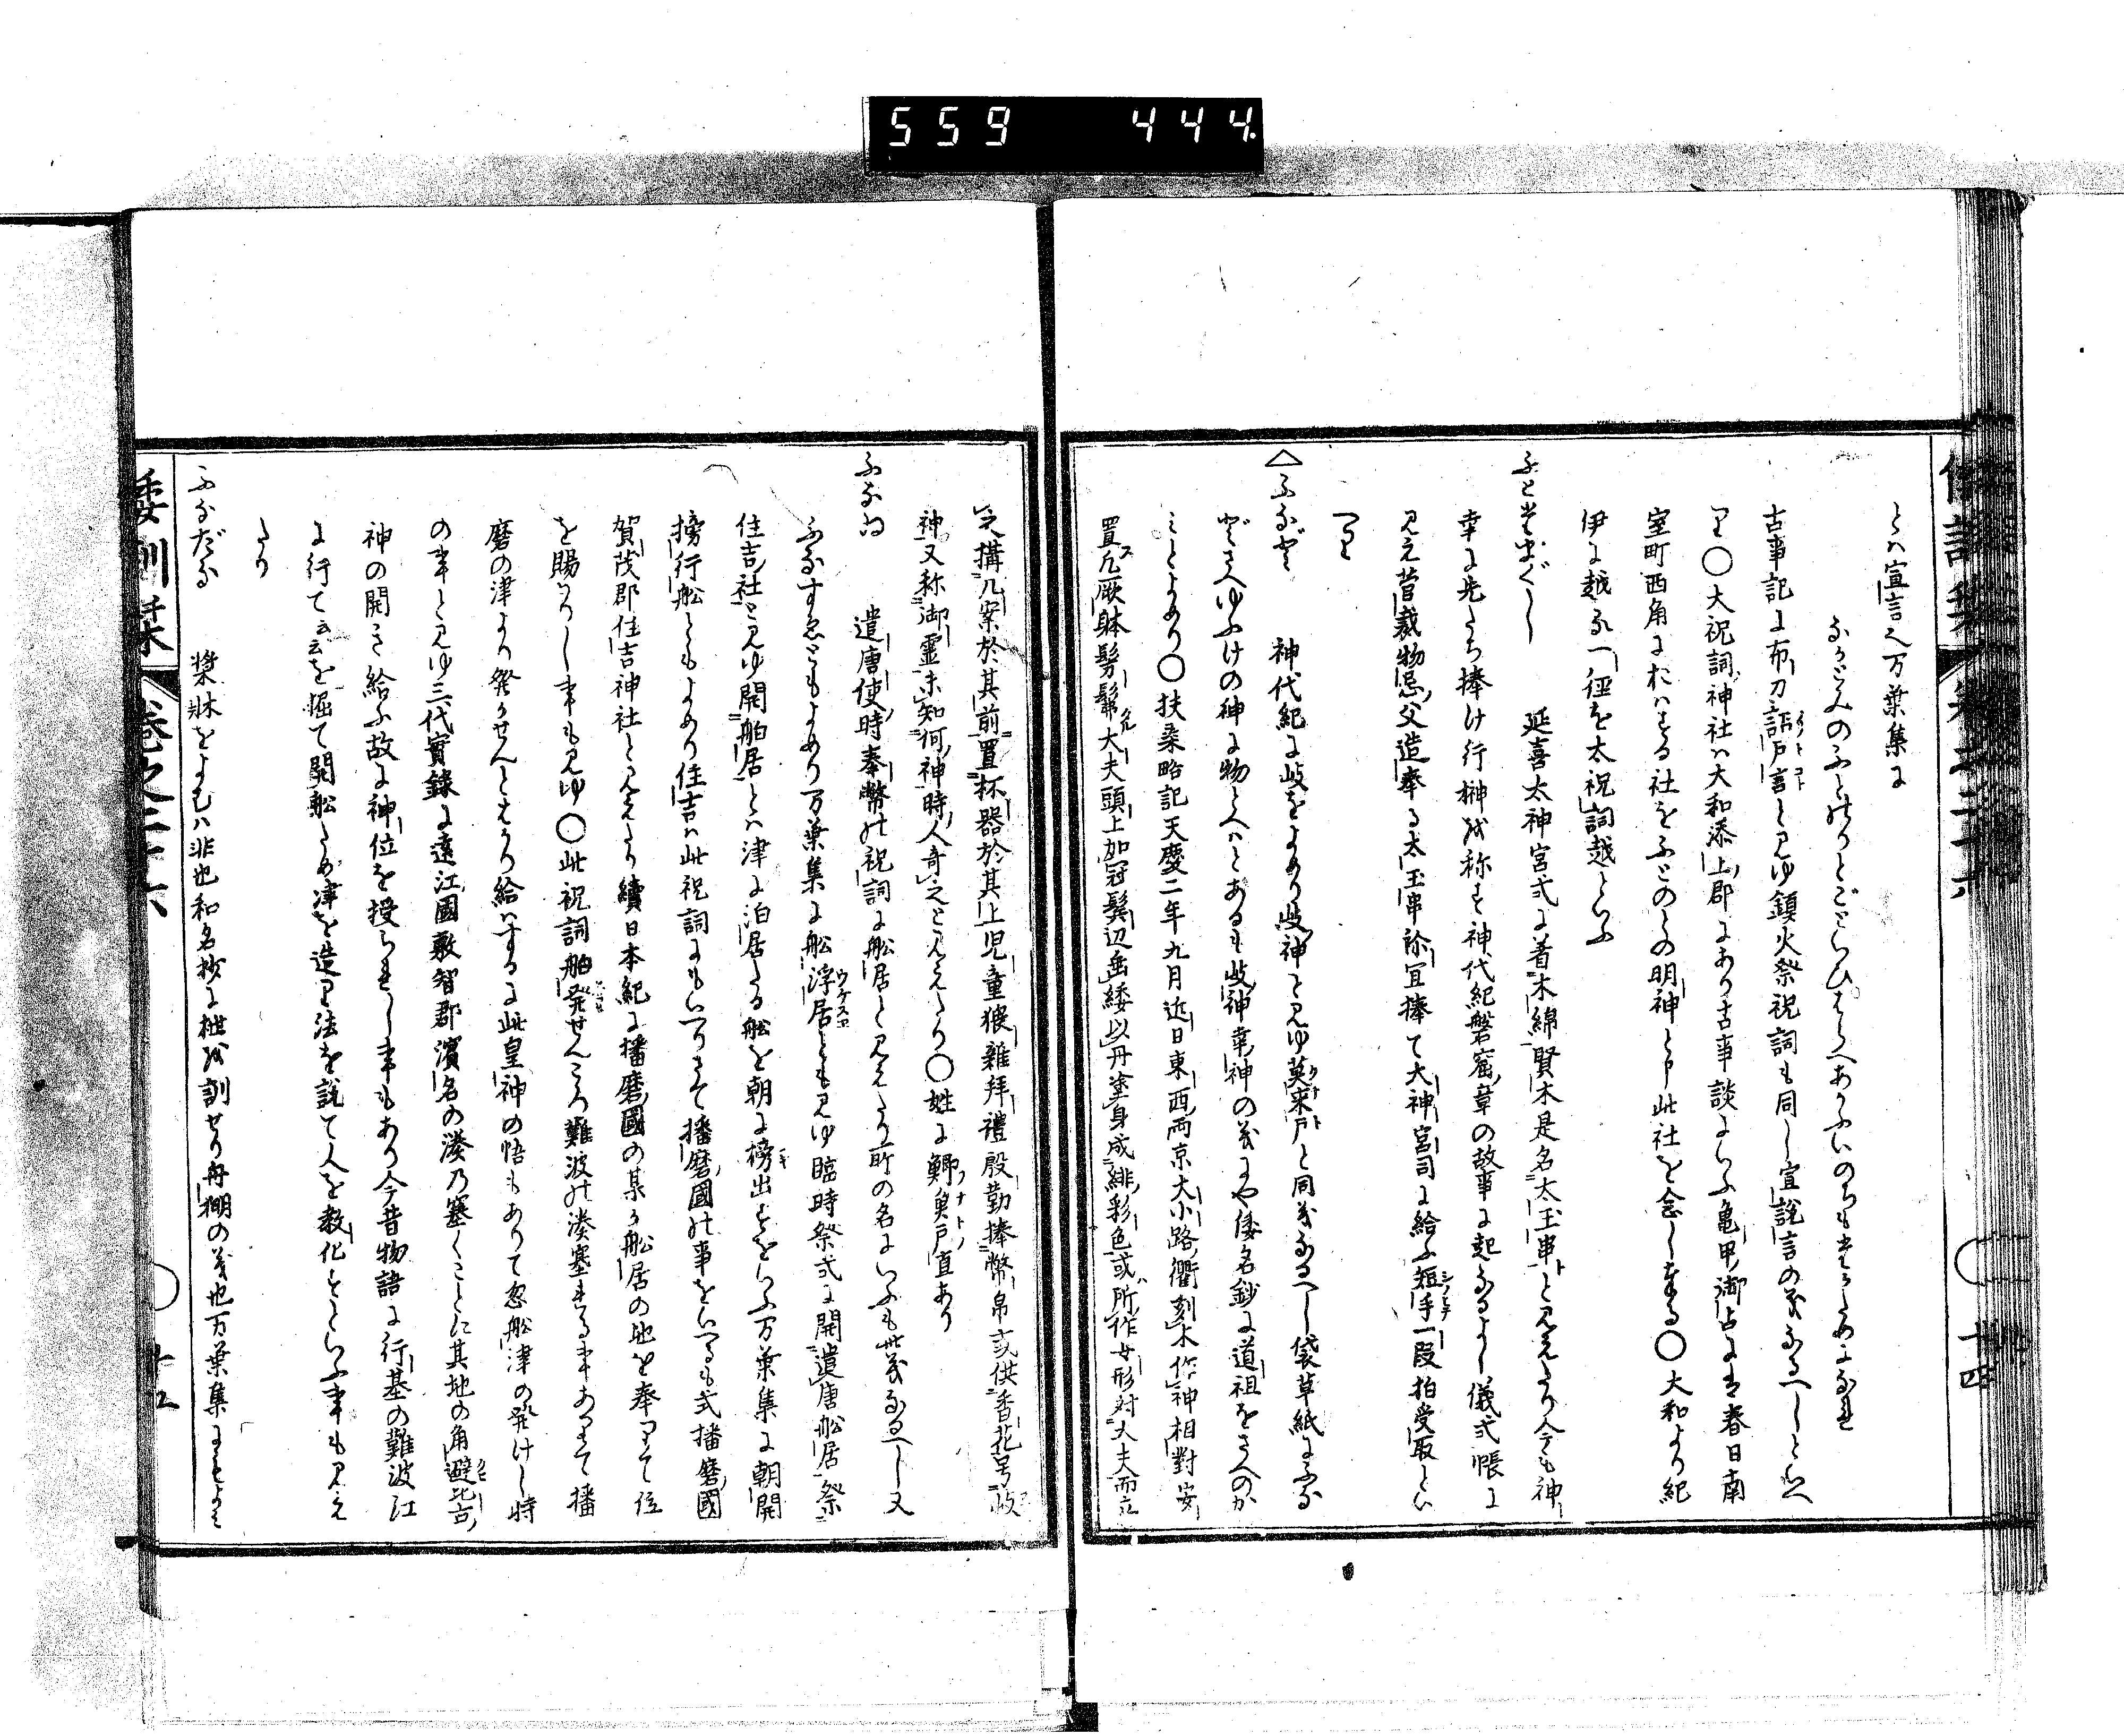 559 444
とハ宣言也万葉集に
なかとみのふとのりとごといひはらへあかふいのちもたかためになれ
古事記に布刀詔戸言と見ゆ鎮火祭祝詞も同し宣説言の義なるへしといへ
り○大祝詞神社ハ大和添上郡にあり古事談にいふ亀甲御占にハ春日南
室町西角におはする社をふとのとの明神と申此社を念し奉る○大和より紀
伊に越る一徑を太祝詞越といふ
ふとたまぐし 延喜太神宮式に着木綿賢木是名太玉串ト見えたり今も神
幸に先たち捧け行榊を称す神代紀磐窟ノ章の故事に起なるよし儀式帳に
見え菅裁物忌ノ父造奉る太玉串祢宜捧て大神宮司に給ふ短手一段拍受取とい
へり
△ふなど 神代紀に岐をよめり岐神と見ゆ莫来戸と同義なるへし袋草紙にふな
どさへゆふけの神に物とへハとあるも岐神幸神の義にや倭名鈔に道祖をさへのか
ミとよめり○扶桑略記天慶二年九月近日東西両京大小路衢刻木作神相對安
置凡厥躰髣髴大夫頭上加冠鬢辺垂緌以丹塗身成緋彩色或所作女形対大夫而立
之搆几案於其前置杯器於其上児童猥雑拜禮慇勤捧幣帛或供香花号岐
神又称御霊未知何神時人奇之と見えたり○姓に鯽魚戸直あり
ふなゐ 遣唐使ノ時奉幣の祝詞に船居と見えたり所の名にいふも此義なるへし又
ふなすゑともよめり万葉集に船浮居とも見ゆ臨時祭式に開遣唐船居祭
住吉ノ社と見ゆ開船居とハ津に泊居たる船を朝に榜出すをいふ万葉集に朝開
榜行船ともよめり住吉ハ此祝詞にもいへりさて播磨ノ國の事をいへるも式播磨ノ國
賀茂郡住吉神社と見えたり續日本紀に播磨國の某か船居の地を奉りて位
を賜ハりし事も見ゆ○此祝詞船発せんころ難波の湊塞れる事ありて播
磨の津より発かせんとはかり給はするに此皇神の悟もありて忽船津の発けし時
の事と見ゆ三代實録に遠江國敷智郡濱名の湊乃塞くことに其地の角避比古ノ
神の開き給ふ故に神位を授られし事もあり今昔物語に行基の難波江
に行て云云を堀て開船ため津を造り法を説て人を教化すといふ事も見え
たり
ふなだな 槳牀をよむハ非也和名抄に枻を訓せり舟棚の義也万葉集にもよミ
倭訓栞 巻之二十六 十四
倭訓栞 巻之二十六 十五